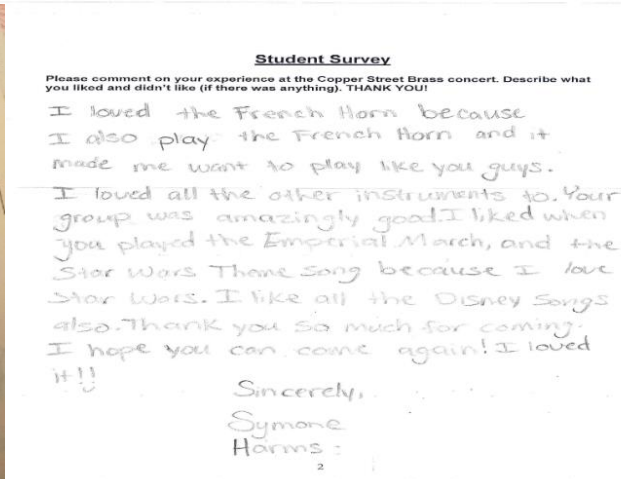 Student Survey
Please comment on your experience at the Copper Street Brass concert. Describe what
you liked and didn't like (if there was anything). THANK YOU!
I loved the French Horn because
I also play the French Horn and it
made me want to play like you guys.
I loved all the other instruments to. Your
group was amazingly good. I liked when
you played the Emperial March, and the
Star Wars Theme Song because I love
Star Wars. I like all the Disney Songs
also. Thank you so much for coming.
I hope you can come again! I loved
it!!
Sincerely,
Symone
Harms :
2